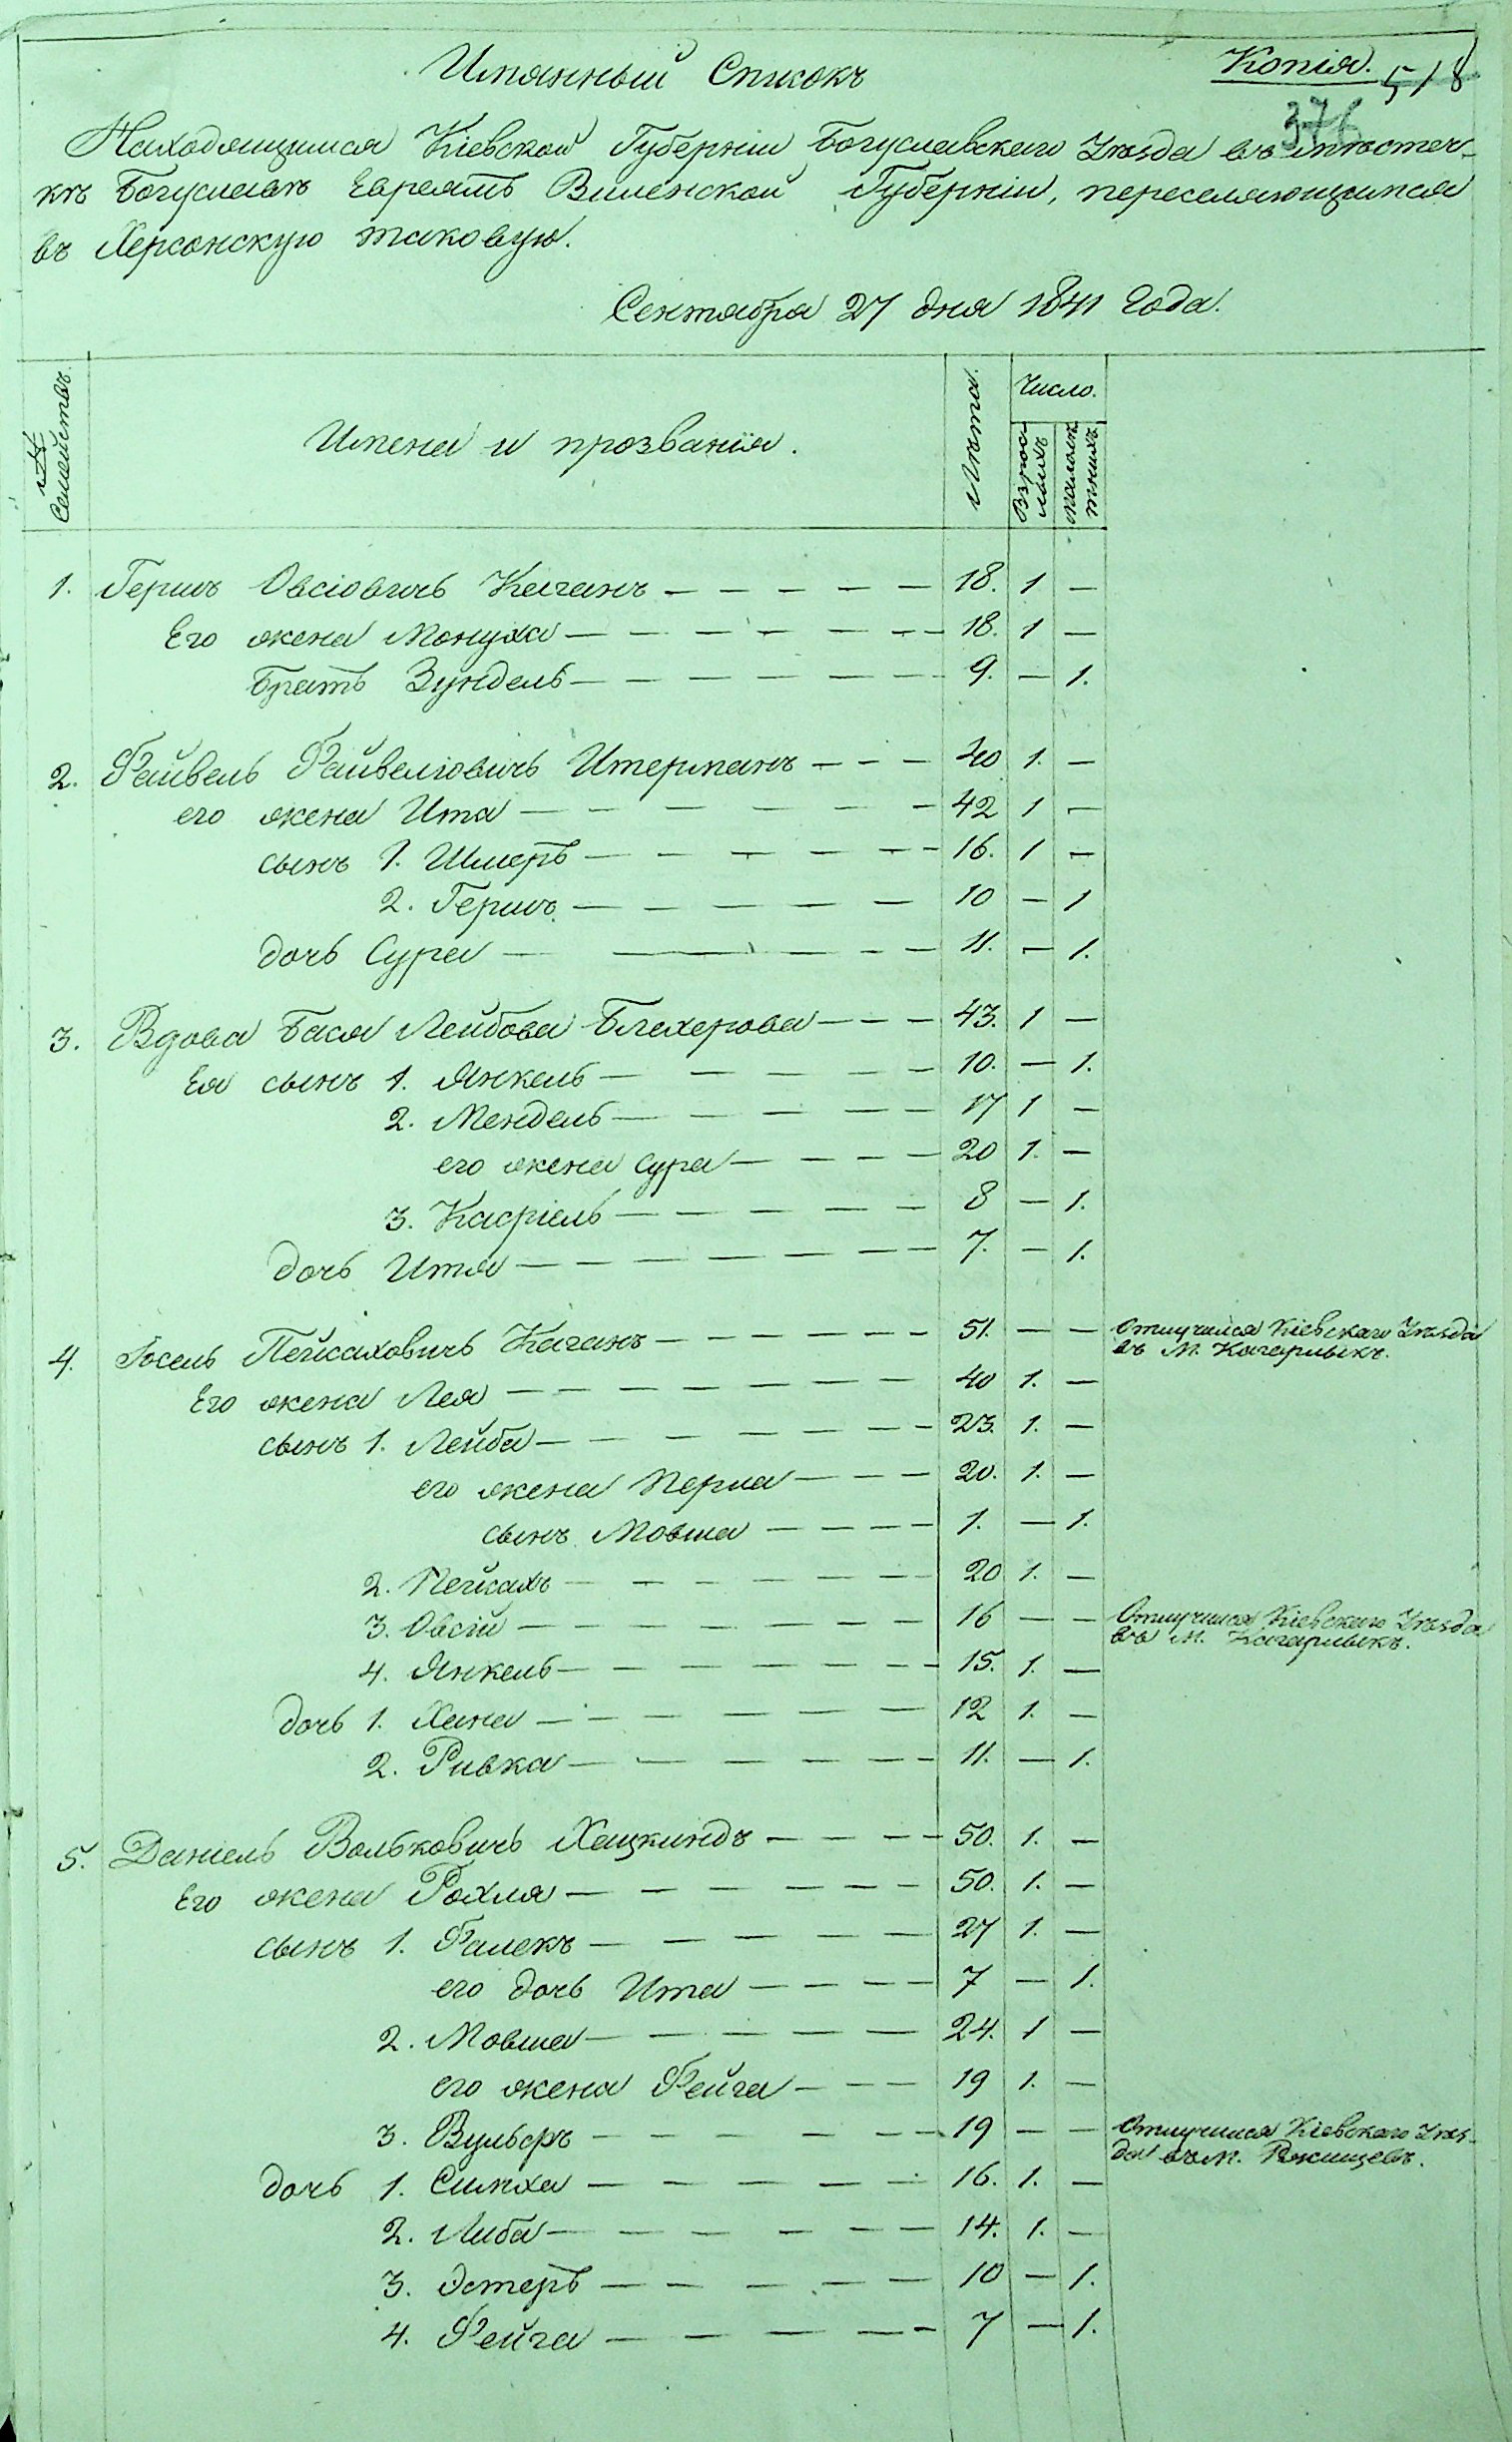 Имянный Списокъ
Копія.
518
376
Находящимся Кіевской Губерніи Богуславскаго Уѣзда въ мѣстеч-
кѣ Богуславѣ Евреямъ Виленской Губерніи, переселяющимся
въ Херсонскую таковую.
Сентября 27 дня 1841 Года.
№ Семействъ. Имена и прозванія. Лѣта. Число. Взрослыхъ малолѣтнихъ
1. Гершъ Овсіовичъ Каганъ — — — — — 18. 1 —
Его жена Монуха — — — — — — 18. 1 —
Братъ Зундель — — — — — — 9. — 1.
2. Файвель Файвеліовичъ Итерманъ — — — 40 1. —
его жена Ита — — — — — — 42 1 —
сынъ 1. Шмеръ — — — — — — 16. 1 —
2. Гершъ — — — — — 10 — 1
дочь Сура — — — — — 11. — 1.
3. Вдова Бася Лейбова Блехерова — — — 43. 1 —
Ея сынъ 1. Янкель — — — — — 10. — 1.
2. Мендель — — — — — 17 1 —
его жена Сура — — — — 20 1. —
3. Касріель — — — — — 8 — 1.
дочь Итя — — — — — — — 7. — 1.
4. Іосель Пейсаховичъ Каганъ — — — — — 51. — — Отлучился Кіевскаго Уѣзда
въ М. Кагарлыкъ.
Его жена Лея — — — — — — — 40 1. —
сынъ 1. Лейба — — — — — — 23. 1. —
его жена Перла — — — 20. 1. —
сынъ Мовша — — — — 1. — 1.
2. Пейсахъ — — — — — — 20 1. —
3. Овсій — — — — — — 16 — — Отлучился Кіевскаго Уѣзда
въ М. Кагарлыкъ.
4. Янкель — — — — — — 15. 1. —
дочь 1. Хана — — — — — — 12 1. —
2. Ривка — — — — — — 11. — 1.
5. Даніель Вольковичъ Хацкиндъ — — — — 50. 1. —
Его жена Рохля — — — — — — 50. 1. —
сынъ 1. Фалекъ — — — — — 27 1. —
его дочь Ита — — — — 7 — 1.
2. Мовша — — — — — 24. 1 —
его жена Фейга — — — 19 1. —
3. Вульфъ — — — — — — 19 — — Отлучился Кіевскаго Уѣз-
да въ М. Ржищевъ.
дочь 1. Симха — — — — — 16. 1. —
2. Либа — — — — — — 14. 1. —
3. Эстеръ — — — — — 10 — 1.
4. Фейга — — — — — 7 — 1.